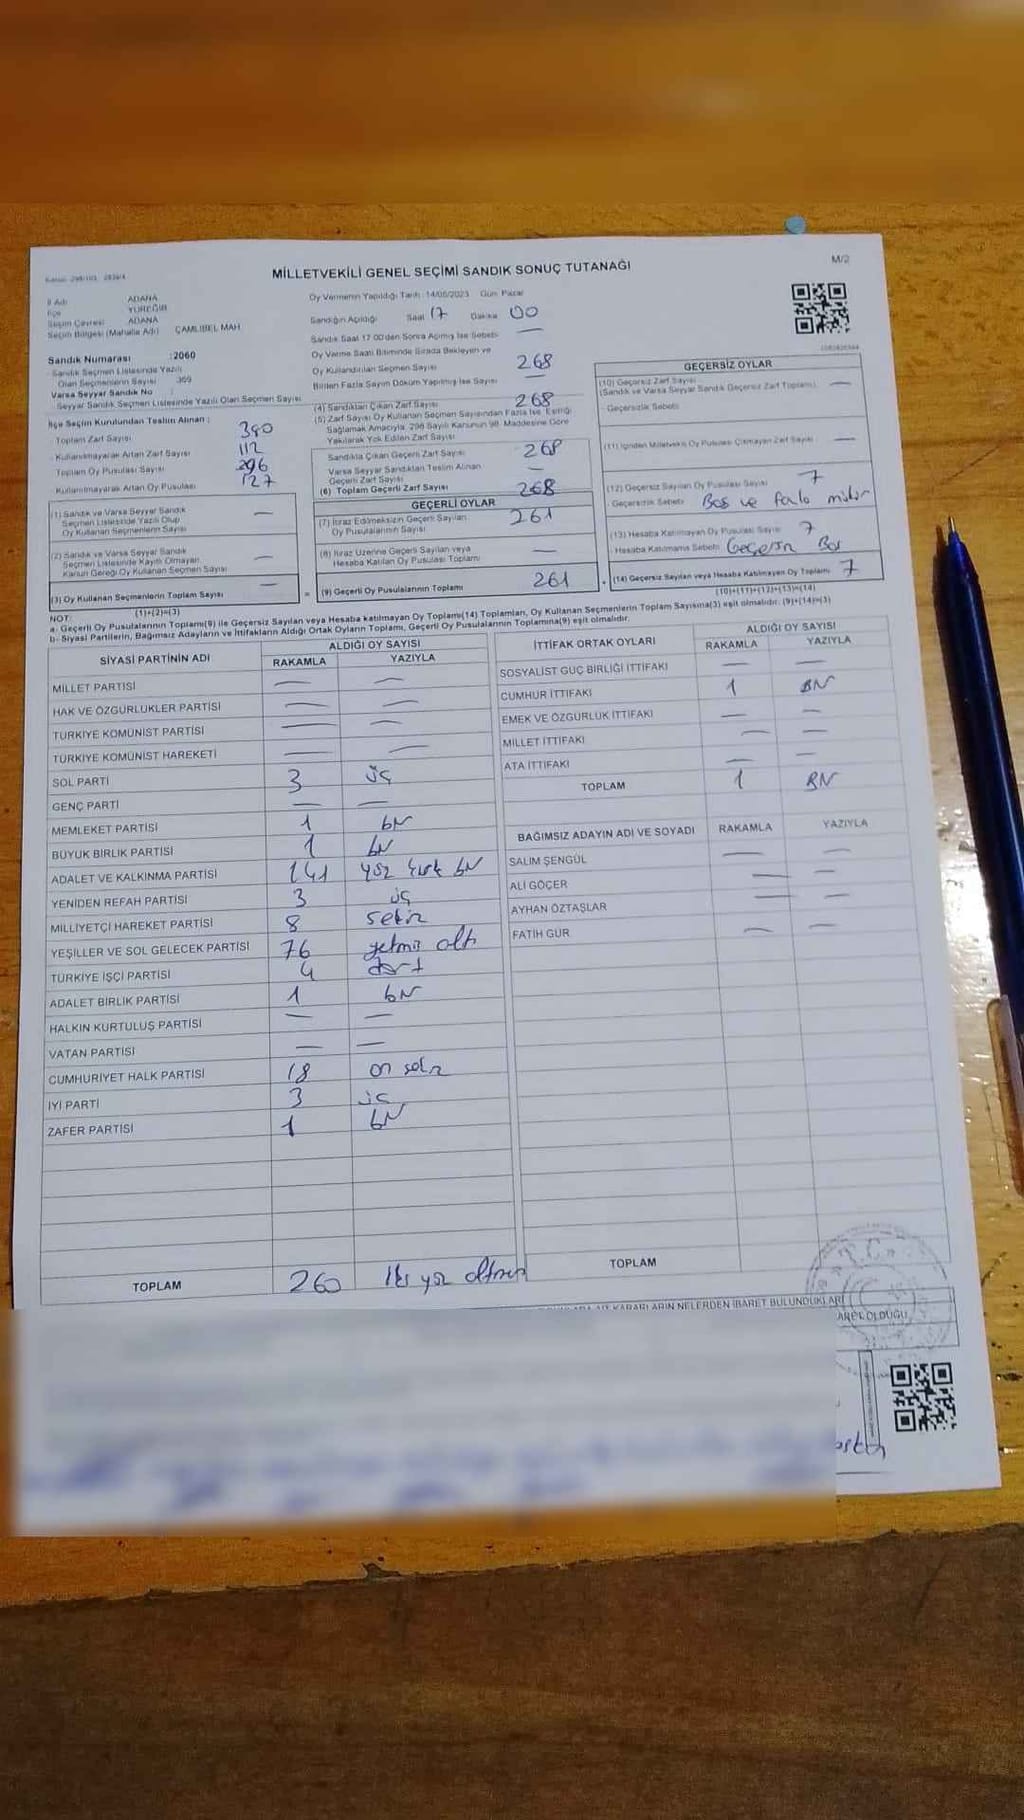 MİLLETVEKİLİ GENEL SEÇİMİ SANDIK SONUÇ TUTANAĞI
M/2
İl Adı ADANA
İlçe YÜREĞİR
Seçim Çevresi ADANA
Seçim Bölgesi (Mahalle Adı) ÇAMLIBEL MAH
Sandık Numarası :2060
Sandık Seçmen Listesinde Yazılı
Olan Seçmenlerin Sayısı 369
Varsa Seyyar Sandık No :
Seyyar Sandık Seçmen Listesinde Yazılı Olan Seçmen Sayısı
İlçe Seçim Kurulundan Teslim Alınan :
Toplam Zarf Sayısı 380
Kullanılmayarak Artan Zarf Sayısı 112
Toplam Oy Pusulası Sayısı
Kullanılmayarak Artan Oy Pusulası 127
(1) Sandık ve Varsa Seyyar Sandık
Seçmen Listesinde Yazılı Olup
Oy Kullanan Seçmenlerin Sayısı —
(2) Sandık ve Varsa Seyyar Sandık
Seçmen Listesinde Kayıtlı Olmayan
Kanun Gereği Oy Kullanan Seçmen Sayısı —
(3) Oy Kullanan Seçmenlerin Toplam Sayısı —
(1)+(2)=(3)
Oy Vermenin Yapıldığı Tarih :14/05/2023 Gün: Pazar
Sandığın Açıldığı Saat 17 Dakika 00
Sandık Saat 17.00'den Sonra Açılmış İse Sebebi —
Oy Verme Saati Bitiminde Sırada Bekleyen ve
Oy Kullandırılan Seçmen Sayısı 268
Birden Fazla Sayım Döküm Yapılmış İse Sayısı —
(4) Sandıktan Çıkan Zarf Sayısı 268
(5) Zarf Sayısı Oy Kullanan Seçmen Sayısından Fazla İse, Eşitliği
Sağlamak Amacıyla, 298 Sayılı Kanunun 98. Maddesine Göre
Yakılarak Yok Edilen Zarf Sayısı
Sandıkta Çıkan Geçerli Zarf Sayısı 268
Varsa Seyyar Sandıktan Teslim Alınan
Geçerli Zarf Sayısı —
(6) Toplam Geçerli Zarf Sayısı 268
GEÇERLİ OYLAR
(7) İtiraz Edilmeksizin Geçerli Sayılan
Oy Pusulalarının Sayısı 261
(8) İtiraz Üzerine Geçerli Sayılan veya
Hesaba Katılan Oy Pusulası Toplamı —
(9) Geçerli Oy Pusulalarının Toplamı 261
GEÇERSİZ OYLAR
(10) Geçersiz Zarf Sayısı —
(Sandık ve Varsa Seyyar Sandık Geçersiz Zarf Toplamı)
Geçersizlik Sebebi
(11) İçinden Milletvekili Oy Pusulası Çıkmayan Zarf Sayısı —
(12) Geçersiz Sayılan Oy Pusulası Sayısı 7
Geçersizlik Sebebi Boş ve fazla mühür
(13) Hesaba Katılmayan Oy Pusulası Sayısı 7
Hesaba Katılmama Sebebi Geçersiz Boş
(14) Geçersiz Sayılan veya Hesaba Katılmayan Oy Toplamı 7
(10)+(11)+(12)+(13)=(14)
NOT:
a- Geçerli Oy Pusulalarının Toplamı(9) ile Geçersiz Sayılan veya Hesaba katılmayan Oy Toplamı(14) Toplamları, Oy Kullanan Seçmenlerin Toplam Sayısına(3) eşit olmalıdır. (9)+(14)=(3)
b- Siyasi Partilerin, Bağımsız Adayların ve İttifakların Aldığı Ortak Oyların Toplamı, Geçerli Oy Pusulalarının Toplamına(9) eşit olmalıdır.
SİYASİ PARTİNİN ADI ALDIĞI OY SAYISI
RAKAMLA YAZIYLA
MİLLET PARTİSİ — —
HAK VE ÖZGÜRLÜKLER PARTİSİ — —
TÜRKİYE KOMÜNİST PARTİSİ — —
TÜRKİYE KOMÜNİST HAREKETİ — —
SOL PARTİ 3 üç
GENÇ PARTİ — —
MEMLEKET PARTİSİ 1 bir
BÜYÜK BİRLİK PARTİSİ 1 bir
ADALET VE KALKINMA PARTİSİ 141 yüz kırk bir
YENİDEN REFAH PARTİSİ 3 üç
MİLLİYETÇİ HAREKET PARTİSİ 8 sekiz
YEŞİLLER VE SOL GELECEK PARTİSİ 76 yetmiş altı
TÜRKİYE İŞÇİ PARTİSİ 4 dört
ADALET BİRLİK PARTİSİ 1 bir
HALKIN KURTULUŞ PARTİSİ — —
VATAN PARTİSİ — —
CUMHURİYET HALK PARTİSİ 18 on sekiz
İYİ PARTİ 3 üç
ZAFER PARTİSİ 1 bir
TOPLAM 260 iki yüz altmış
İTTİFAK ORTAK OYLARI ALDIĞI OY SAYISI
RAKAMLA YAZIYLA
SOSYALİST GÜÇ BİRLİĞİ İTTİFAKI — —
CUMHUR İTTİFAKI 1 BİR
EMEK VE ÖZGÜRLÜK İTTİFAKI — —
MİLLET İTTİFAKI — —
ATA İTTİFAKI — —
TOPLAM 1 BİR
BAĞIMSIZ ADAYIN ADI VE SOYADI RAKAMLA YAZIYLA
SALİM ŞENGÜL — —
ALİ GÖÇER — —
AYHAN ÖZTAŞLAR — —
FATİH GÜR — —
TOPLAM
KARARLARIN NELERDEN İBARET BULUNDUKLARI
OLDUĞU